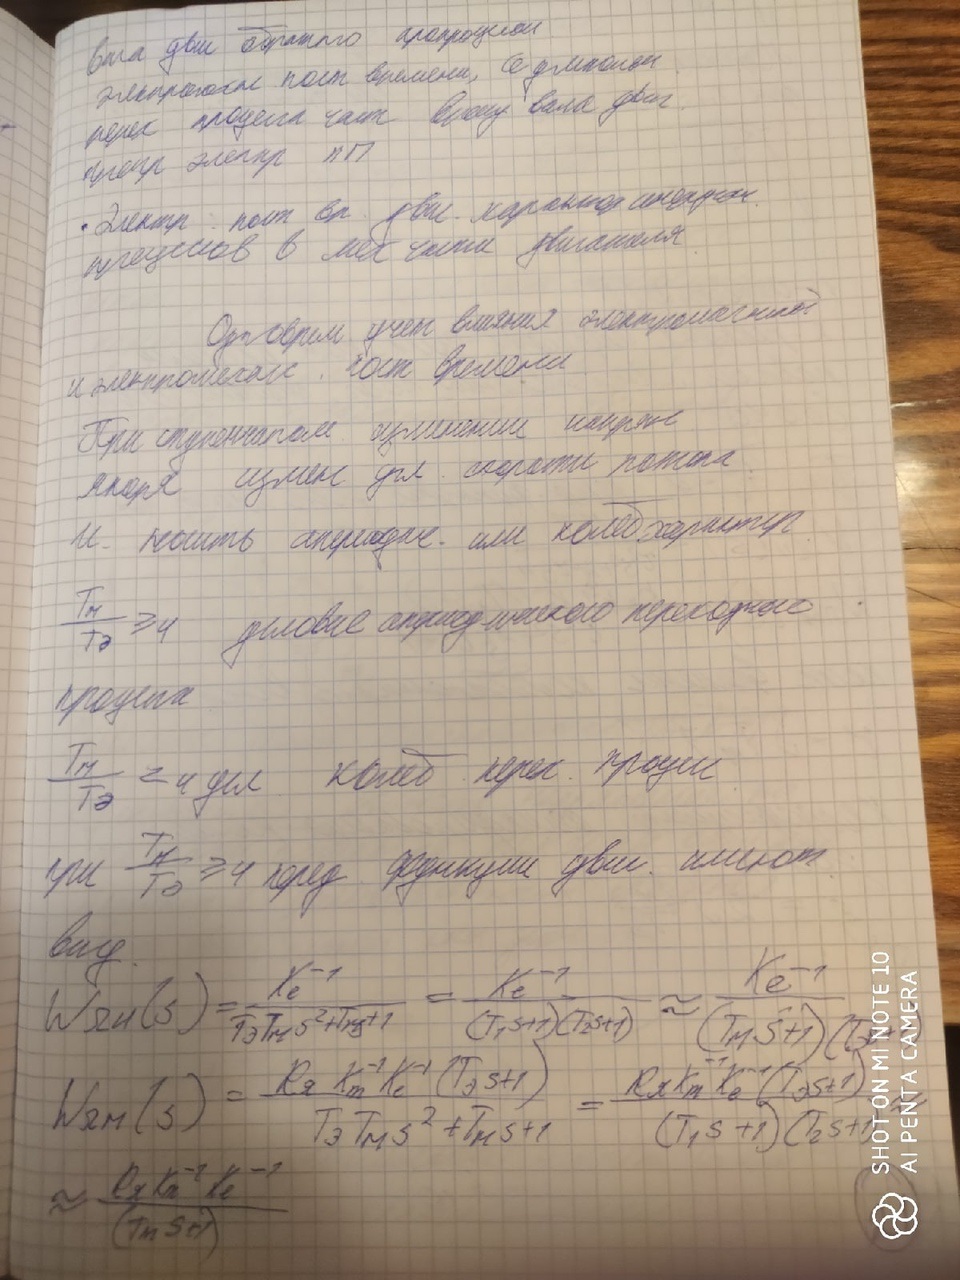 вала двиг обратно пропроцион
электромагн пост времени,
перех процесса част вращ вала двиг
электр пп
· Электр. пост вр. двиг. характер
процессов в мех части двигателя
учет влияния электромагнитной
и электромеханич. пост времени
При ступенчатом изменении напряж
якоря измен угл. скорости
и. носить апериодич. или колеб характер
Tм/Tэ ≥ 4 условие апериодического переходного
процесса
Tм/Tэ = 4 для колеб. перех. процесс
при Tм/Tэ ≥ 4 перед. функции двиг. имеют
вид.
Wян(s) = Ke⁻¹/(TэTмs²+Tмs+1) = Ke⁻¹/((T₁s+1)(T₂s+1)) ≈ Ke⁻¹/((Tмs+1)
Wям(s) = RяKm⁻¹Ke⁻¹(Tэs+1)/(TэTмs²+Tмs+1) = RяKm⁻¹Ke⁻¹(Tэs+1)/((T₁s+1)(T₂s+1)) ≈
≈ RяKm⁻¹Ke⁻¹/(Tмs+1)
SHOT ON MI NOTE 10
AI PENTA CAMERA